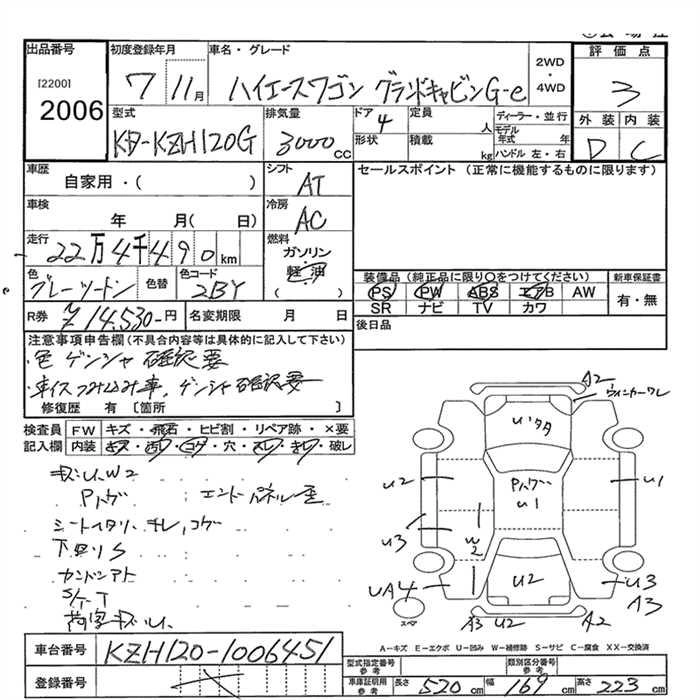 出品番号
[2200]
2006
初度登録年月
7 11月
車名・グレード
ハイエースワゴン グランドキャビンG-e
2WD
・
4WD
評価点
3
外装 内装
D C
型式
KD-KZH120G
排気量
3000cc
ドア
4
形状
定員
人
積載
kg
ディーラー・並行
モデル年式 年
ハンドル 左・右
車歴
自家用・( )
シフト
AT
セールスポイント(正常に機能するものに限ります)
車検
年 月( 日)
冷房
AC
走行
22万4千490km
燃料
ガソリン
軽油
( )
色
グレーツートン
色替
色コード
2BY
装備品(純正品に限り○をつけてください)
PS PW ABS エアB AW
SR ナビ TV カワ
新車保証書
有・無
R券
¥14,530-円
名変期限 月 日
後日品
注意事項申告欄(不具合内容等は具体的に記入して下さい)
色 ゲンシャ確認要
車イスつみ込み車、ゲンシャ確認要
修復歴 有 [箇所 ]
検査員
記入欄
FW キズ・飛石・ヒビ割・リペア跡・×要
内装 キズ・汚レ・コゲ・穴・スレ・キレ・破レ
Pハゲ
エンドパネル歪
シートヘタリ、キレ、コゲ
下回りS
A2
ウィンカーワレ
Uハタタ
U2
Pハゲ
U1
U1
U3
W2
UA4
U2
U3
A3
スペア
A3 U2
A2
A−キズ E−エクボ U−凹み W−補修跡 S−サビ C−腐食 XX−交換済
車台番号
KZH120-1006451
登録番号
型式指定番号
参考
類別区分番号
参考
車庫証明用
参考
長さ 520cm 幅 169cm 高さ 223cm